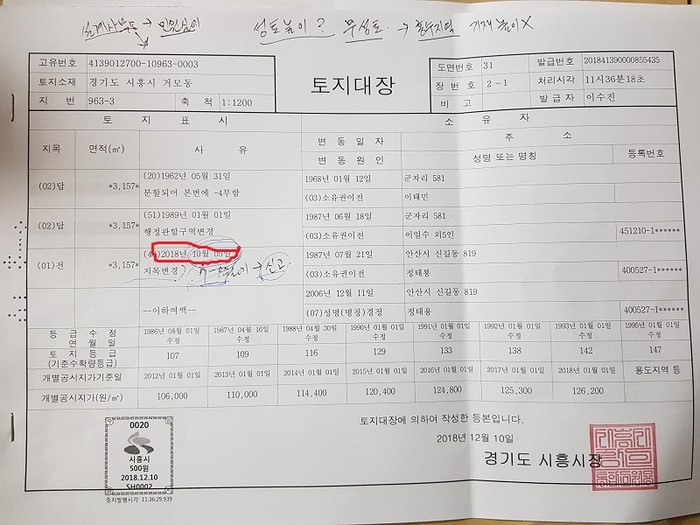 성토높이? 무성토 → 홍수지역
고유번호 4139012700-10963-0003
토지소재 경기도 시흥시 거모동
지 번 963-3 축 척 1:1200
토지대장
도면번호 31 발급번호 201841390000855435
장 번호 2-1 처리시각 11시36분18초
비 고 발급자 이수진
토 지 표 시 소 유 자
지목 면적(㎡) 사 유 변 동 일 자 주 소
변 동 원 인 성명 또는 명칭 등록번호
(02)답 *3,157* (20)1962년 05월 31일 1968년 01월 12일 군자리 581
분할되어 본번에 -4부함 (03)소유권이전 이태민
(02)답 *3,157* (51)1989년 01월 01일 1987년 06월 18일 군자리 581
행정관할구역변경 (03)소유권이전 이일수 외5인 451210-1******
(01)전 *3,157* 2018년 10월 05일 1987년 07월 21일 안산시 신길동 819
지목변경 → 신고 (03)소유권이전 정태용 400527-1******
2006년 12월 11일 안산시 신길동 819
--이하여백-- (07)성명(명칭)경정 정태용 400527-1******
등 급 수 정 1986년 08월 01일 1987년 04월 16일 1988년 04월 30일 1990년 01월 01일 1991년 01월 01일 1992년 01월 01일 1993년 01월 01일 1995년 01월 01일
연 월 일 수정 수정 수정 수정 수정 수정 수정 수정
토 지 등 급 107 109 116 129 133 138 142 147
(기준수확량등급)
개별공시지가기준일 2012년 01월 01일 2013년 01월 01일 2014년 01월 01일 2015년 01월 01일 2016년 01월 01일 2017년 01월 01일 2018년 01월 01일 용도지역 등
개별공시지가(원/㎡) 106,000 110,000 114,400 120,400 124,800 125,300 126,200
토지대장에 의하여 작성한 등본입니다.
2018년 12월 10일
경기도 시흥시장
0020
시흥시
500원
2018.12.10
SH0002
증지발행시각 : 11:36:29.939